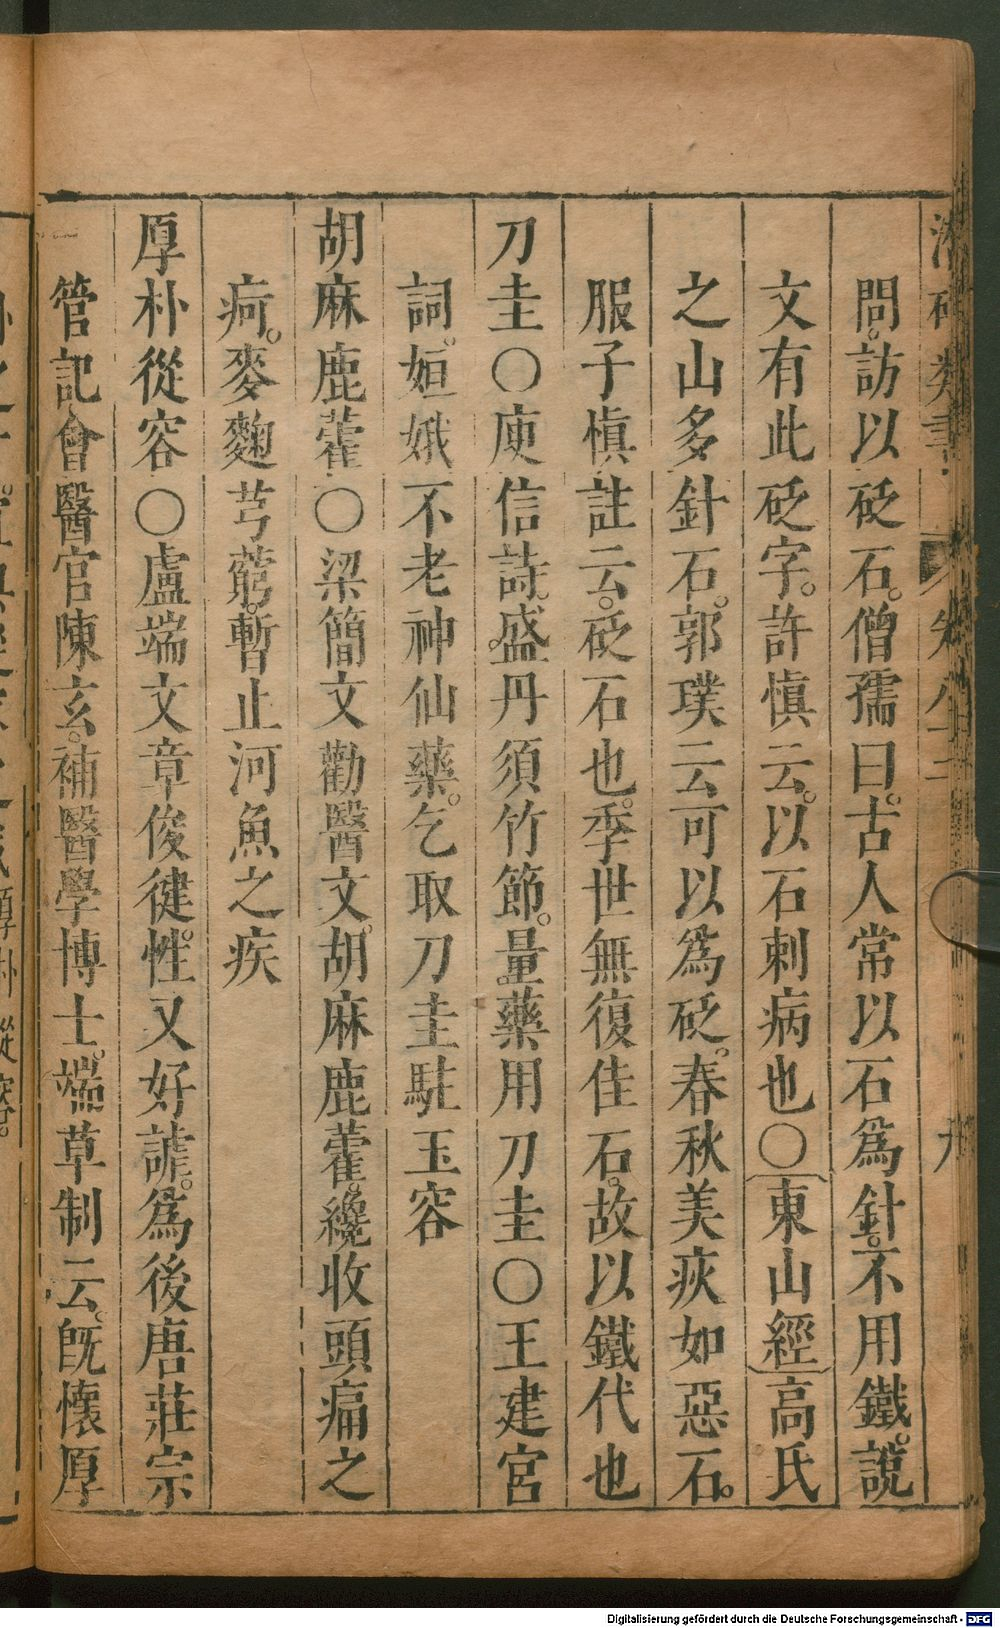 問。訪以砭石。僧孺曰。古人常以石爲針。不用鐵。說
文有此砭字。許愼云。以石刺病也〇東山經高氏
之山多針石。郭璞云可以爲砭。春秋美疢如惡石。
服子愼註云。砭石也。季世無復佳石。故以鐵代也
刀圭〇庾信詩。盛丹須竹節。量藥用刀圭〇王建宮
詞。姮娥不老神仙藥。乞取刀圭駐玉容
胡麻鹿藿〇梁簡文勸醫文。胡麻鹿藿。纔收頭痛之
疴。麥麴芎藭。暫止河魚之疾
厚朴從容〇盧端文章俊健。性又好謔。爲後唐莊宗
管記會醫官陳玄。補醫學博士。端草制云。旣懷厚
類書
卷
九
Digitalisierung gefördert durch die Deutsche Forschungsgemeinschaft - DFG